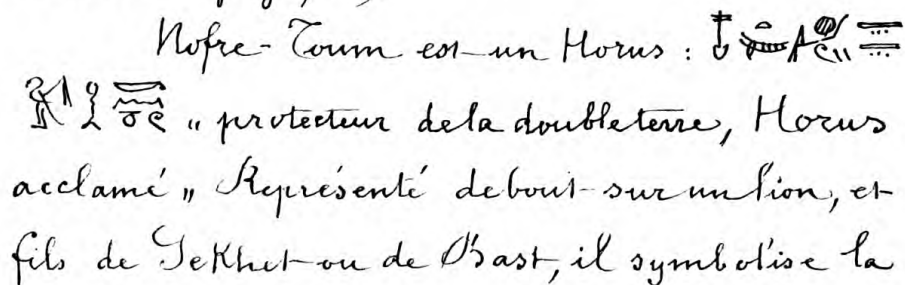 Nofre-Toum est un Horus :
„ protecteur de la double terre, Horus
acclamé „ Représenté debout sur un lion, et
fils de Sekhet ou de Bast, il symbolise la